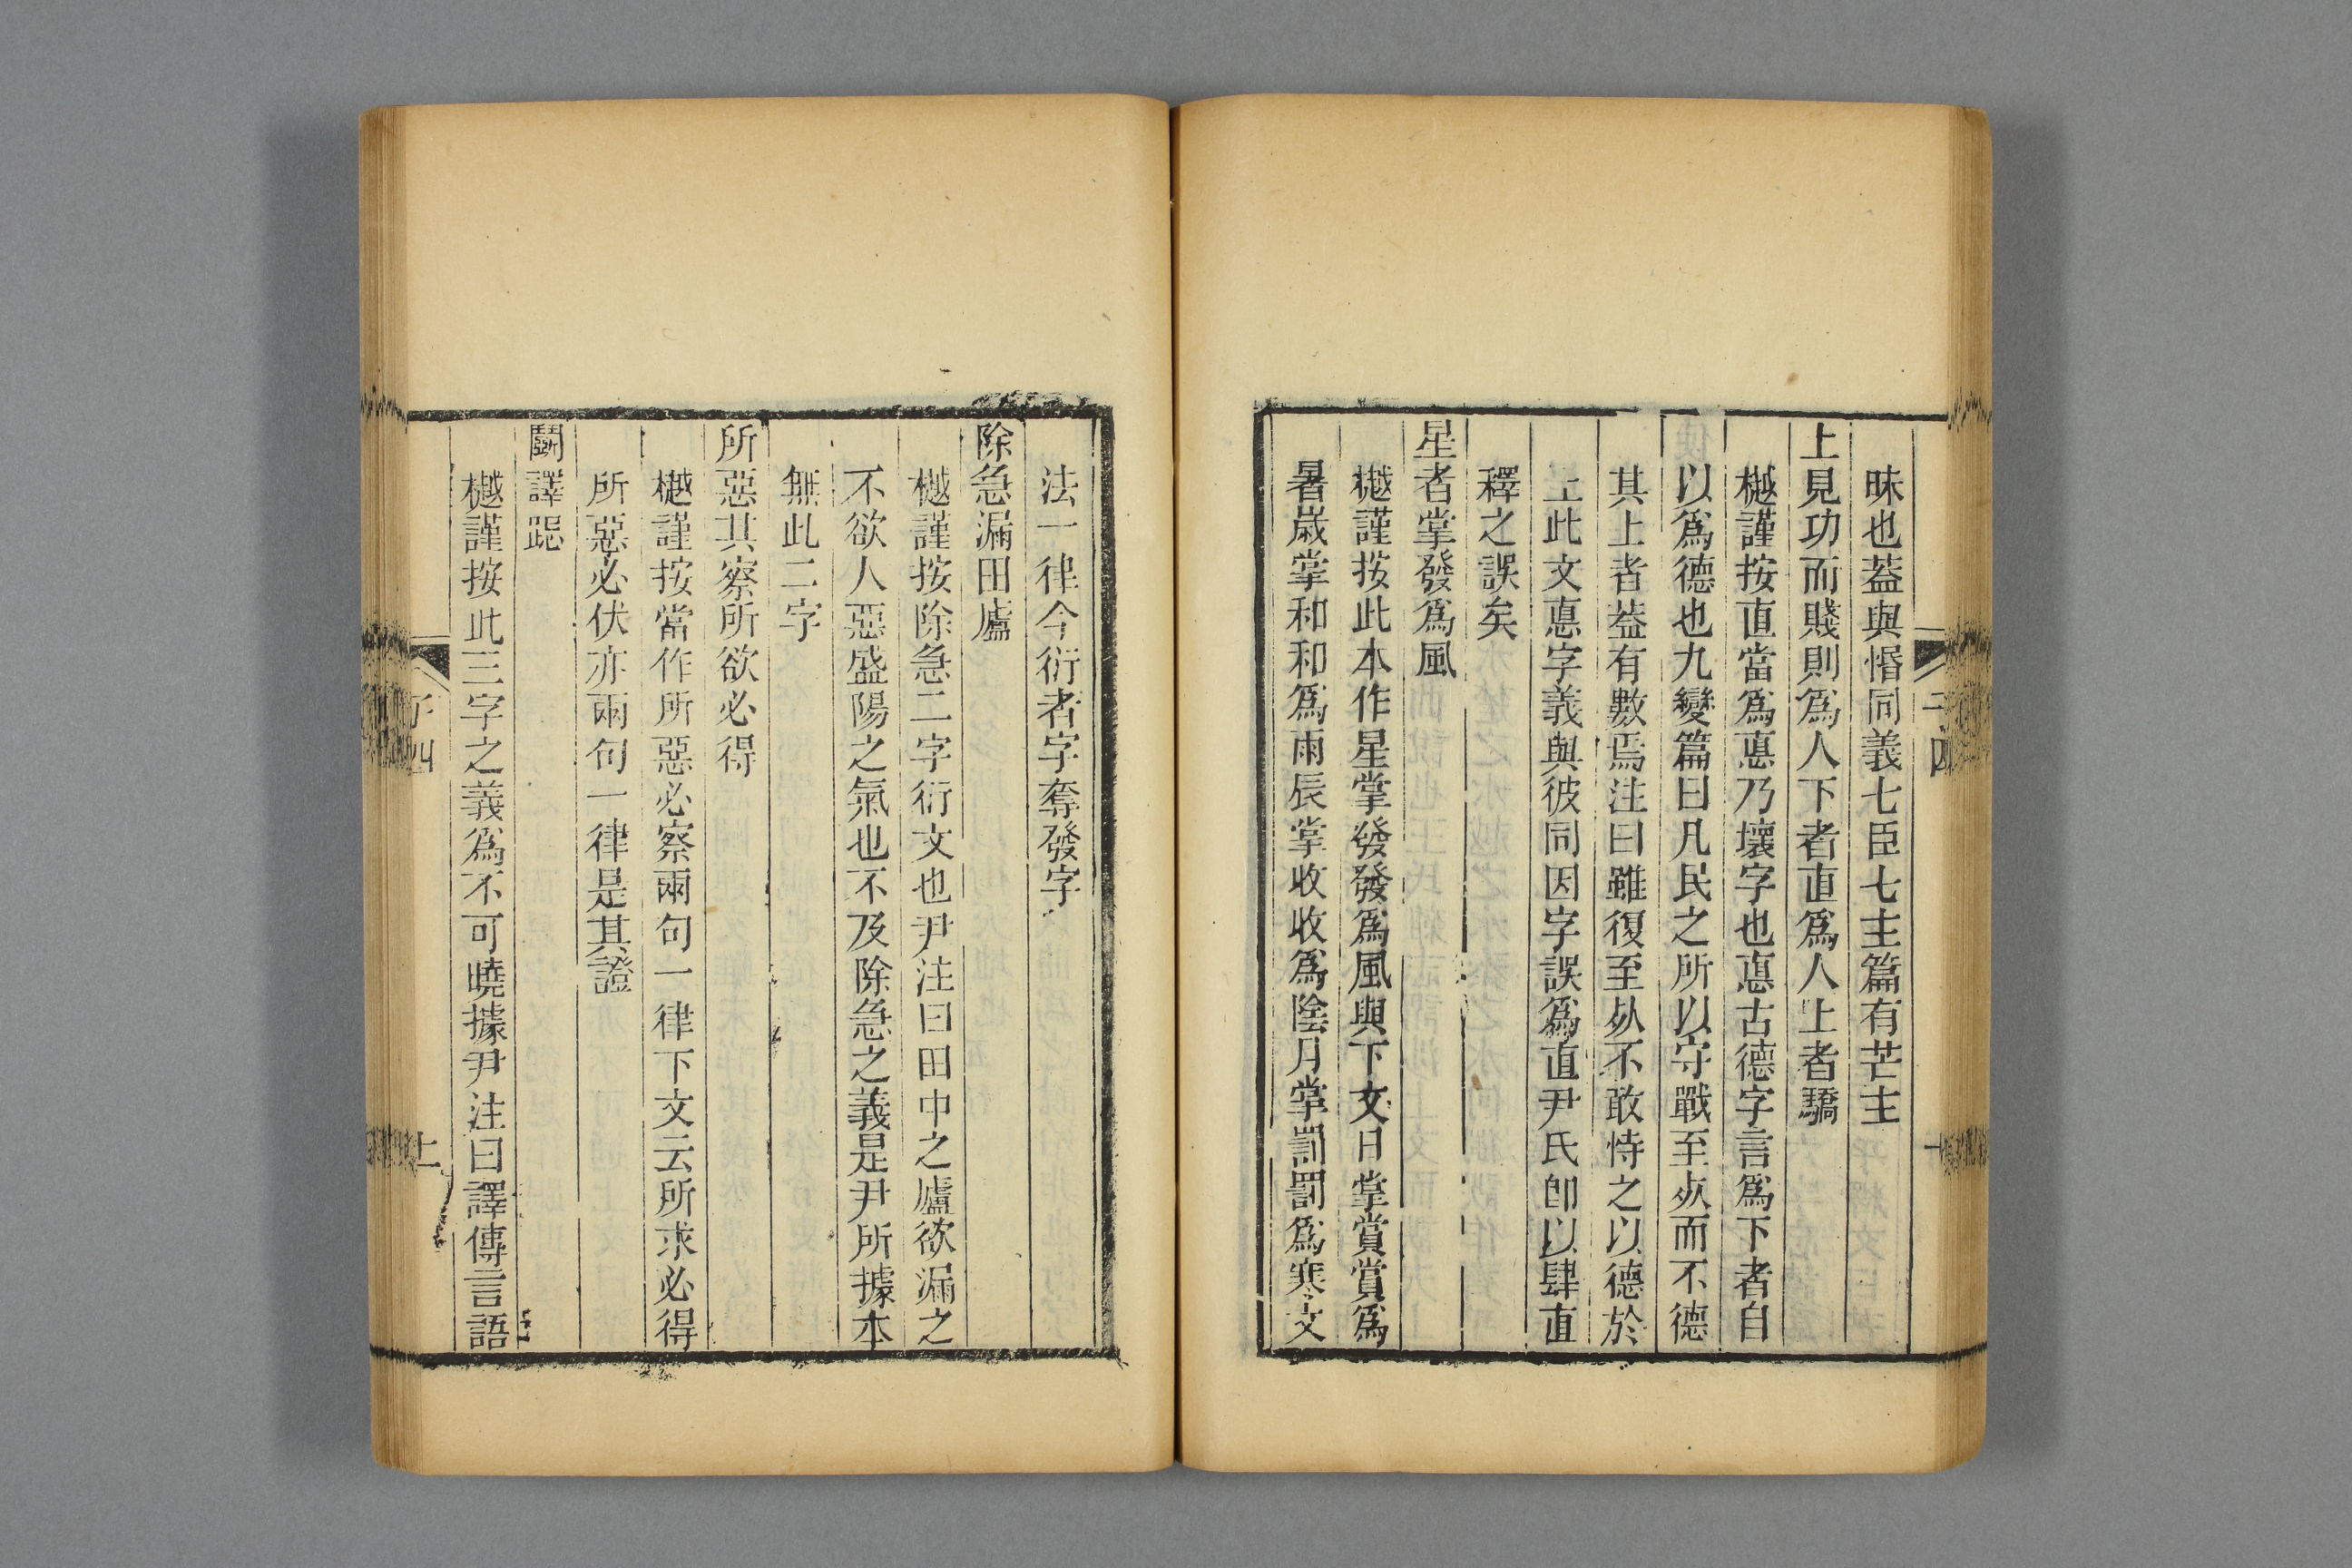 昧也葢與惽同義七臣七主篇有芒主
上見功而賤則爲人下者直爲人上者驕
樾謹按直當爲悳乃壞字也悳古德字言爲下者自
以爲德也九變篇曰凡民之所以守戰至死而不德
其上者葢有數焉注曰雖復至死不敢恃之以德於
上此文悳字義與彼同因字誤爲直尹氏卽以肆直
釋之誤矣
星者掌發爲風
樾謹按此本作星掌發發爲風與下文日掌賞賞爲
暑歲掌和和爲雨辰掌收收爲陰月掌罰罰爲寒文
法一律今衍者字奪發字
除急漏田廬
樾謹按除急二字衍文也尹注曰田中之廬欲漏之
不欲人惡盛陽之氣也不及除急之義是尹所據本
無此二字
所惡其察所欲必得
樾謹按當作所惡必察兩句一律下文云所求必得
所惡必伏亦兩句一律是其證
鬭譯跽
樾謹按此三字之義爲不可曉據尹注曰譯傳言語
子四